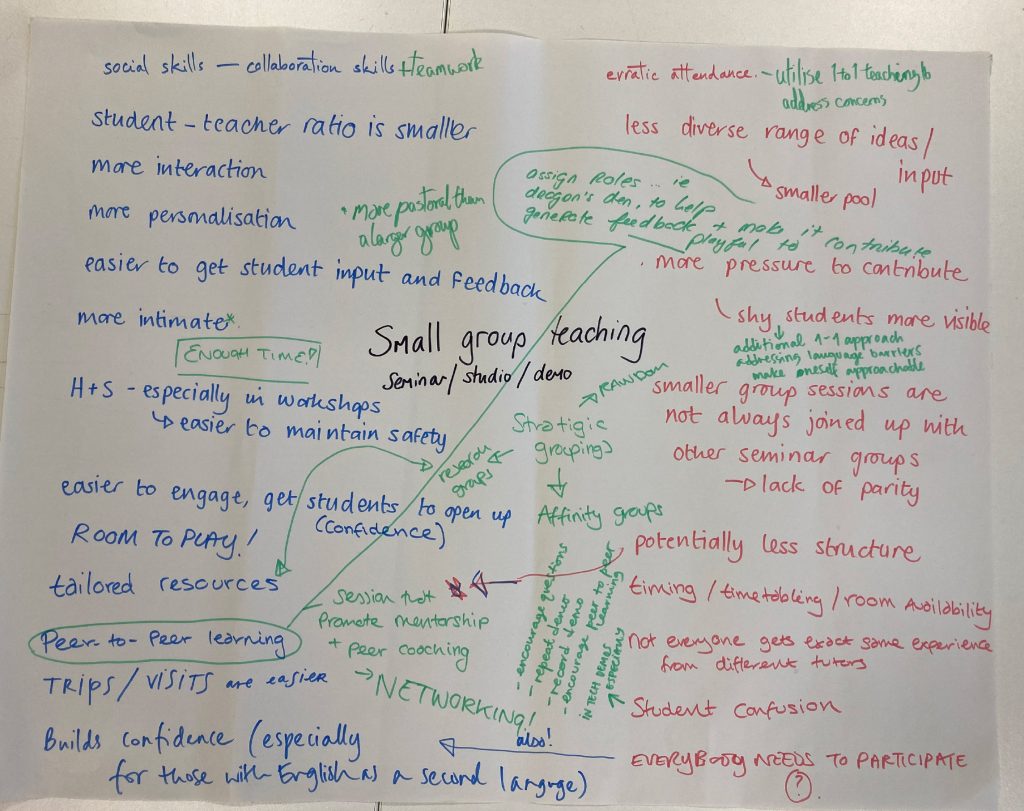 social skills — collaboration skills +teamwork
student – teacher ratio is smaller
more interaction
more personalisation
* more pastoral than
a larger group
easier to get student input and feedback
more intimate*.
ENOUGH TIME?!
H+S - especially in workshops
↳ easier to maintain safety
easier to engage, get students to open up
(confidence)
ROOM TO PLAY!
tailored resources
Peer-to-Peer learning
TRIPS / VISITS are easier
Builds confidence (especially
for those with English as a second language)
Small group teaching
seminar / studio / demo
Stratigic
groupings
→ RANDOM
research
groups
Affinity groups
session that
promote mentorship
+ peer coaching
→ NETWORKING!
- encourage questions
- repeat demo
- record demo
- encourage peer to peer
learning
IN TECH DEMOS
ESPECIALLY
also!
erratic attendance. - utilise 1 to 1 teaching to
address concerns
less diverse range of ideas /
input
↳ smaller pool
assign roles... ie
dragon's den, to help
generate feedback + make it
playful to contribute
. more pressure to contribute
↳ shy students more visible
additional 1-1 approach
addressing language barriers
make oneself approachable
smaller group sessions are
not always joined up with
other seminar groups
→ lack of parity
potentially less structure
timing / timetabling / room availability
Not everyone gets exact same experience
from different tutors
Student confusion
EVERYBODY NEEDS TO PARTICIPATE
?